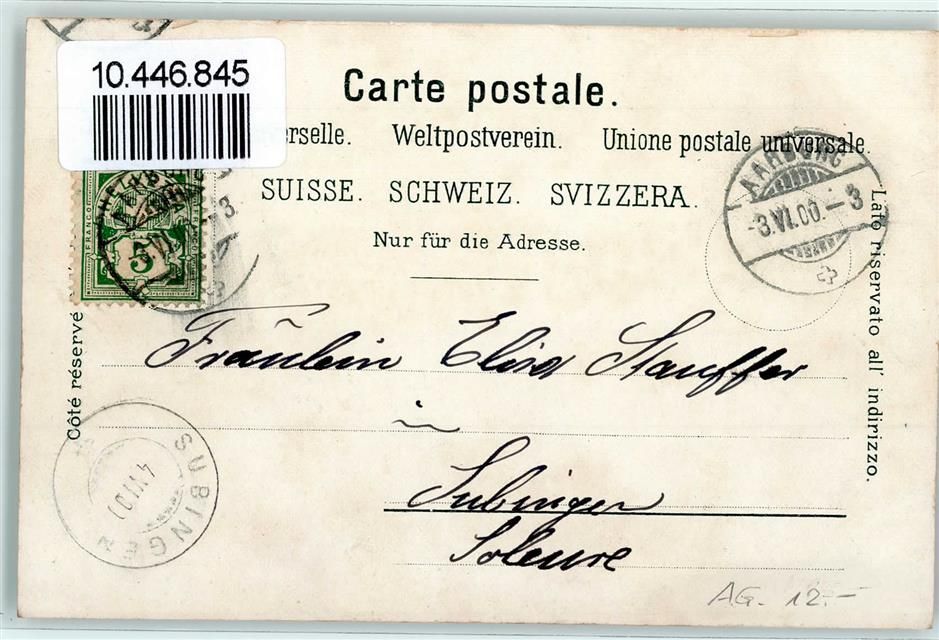 10.446.845
Carte postale.
erselle. Weltpostverein. Unione postale universale.
SUISSE. SCHWEIZ. SVIZZERA.
Nur für die Adresse.
Côté réservé
Lato riservato all' indirizzo.
FRANCO
5
AARBURG
-3.VI.00.-3
Fräulein Elisa Stauffer
in
Subingen
Soleure
SUBINGEN
4.VI.00
AG. 12.-